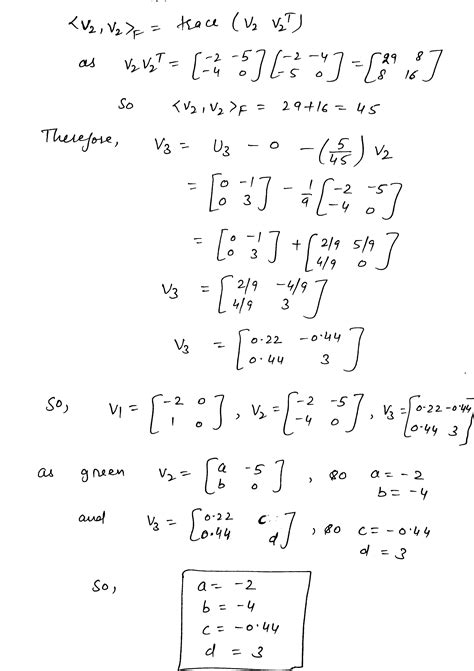 <V2, V2>F = trace (V2 V2^T)
as V2V2^T = [-2 -5; -4 0] [-2 -4; -5 0] = [29 8; 8 16]
So <V2, V2>F = 29+16 = 45
Therefore, V3 = U3 - 0 - (5/45) V2
= [0 -1; 0 3] - 1/9 [-2 -5; -4 0]
= [0 -1; 0 3] + [2/9 5/9; 4/9 0]
V3 = [2/9 -4/9; 4/9 3]
V3 = [0.22 -0.44; 0.44 3]
So, V1 = [-2 0; 1 0], V2 = [-2 -5; -4 0], V3 = [0.22 -0.44; 0.44 3]
as green V2 = [a -5; b 0], so a = -2
b = -4
and V3 = [0.22 c; 0.44 d], so c = -0.44
d = 3
So,
a = -2
b = -4
c = -0.44
d = 3